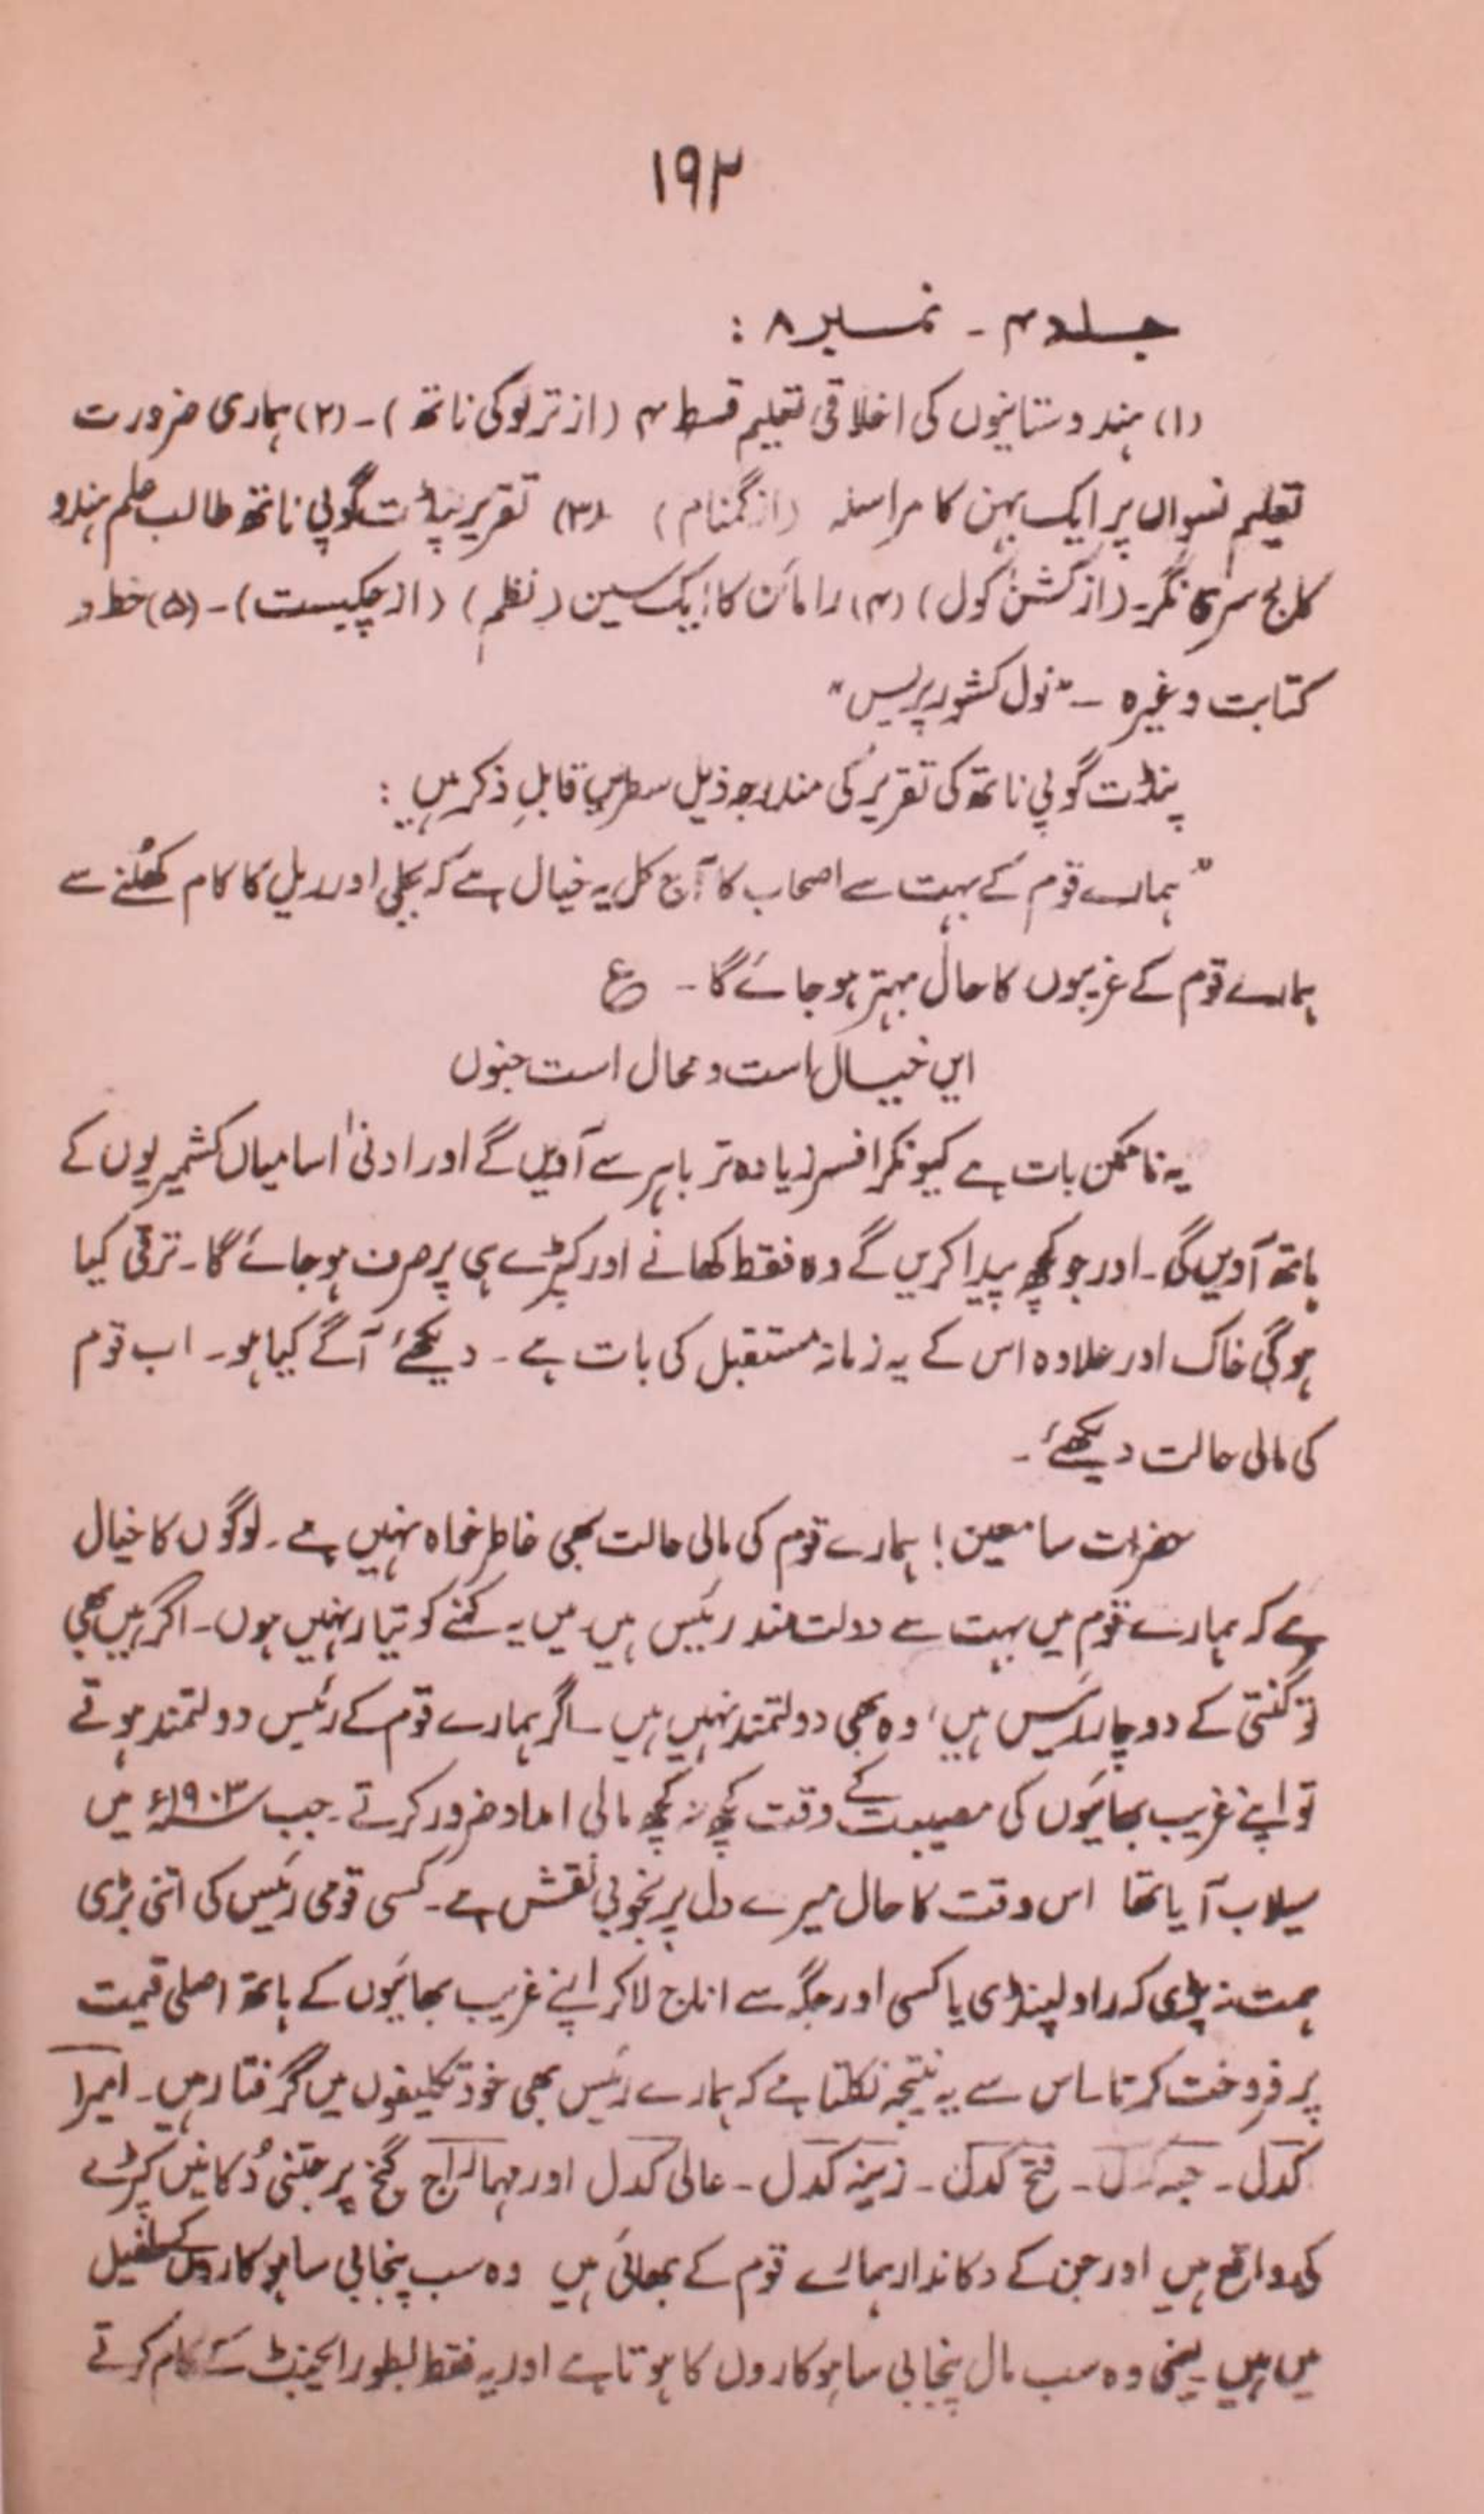 ۱۹۲
جلد ۴ - نمبر ۸ :
(۱) ہندوستانیوں کی اخلاقی تعلیم قسط ۴ (از ترلوکی ناتھ) - (۲) ہماری ضرورت
تعلیم نسواں پر ایک بہن کا مراسلہ (از گمنام) (۳) تقریر پنڈت گوپی ناتھ طالب علم ہندو
کالج سرینگر - (از کشن کول) (۴) رامائن کا ایک سین (نظم) (از چکبست) - (۵) خط و
کتابت وغیرہ - "نول کشور پریس"
پنڈت گوپی ناتھ کی تقریر کی مندرجہ ذیل سطریں قابلِ ذکر ہیں :
"ہمارے قوم کے بہت سے اصحاب کا آج کل یہ خیال ہے کہ بجلی اور ریل کا کام کھُلنے سے
ہمارے قوم کے غریبوں کا حال بہتر ہو جائے گا - ع
ایں خیال است و محال است جنوں
یہ ناممکن بات ہے کیونکہ افسر زیادہ تر باہر سے آویں گے اور ادنیٰ اسامیاں کشمیریوں کے
ہاتھ آویں گی - اور جو کچھ پیدا کریں گے وہ فقط کھانے اور کپڑے ہی پر صرف ہو جائے گا - ترقی کیا
ہوگی خاک اور علاوہ اس کے یہ زمانہ مستقبل کی بات ہے - دیکھئے آگے کیا ہو - اب قوم
کی مالی حالت دیکھئے -
حضرات سامعین! ہمارے قوم کی مالی حالت بھی خاطر خواہ نہیں ہے - لوگوں کا خیال
ہے کہ ہمارے قوم میں بہت سے دولت مند رئیس ہیں میں یہ کہنے کو تیار نہیں ہوں - اگر ہیں بھی
تو گنتی کے دو چار رئیس ہیں، وہ بھی دولتمند نہیں ہیں - اگر ہمارے قوم کے رئیس دولتمند ہوتے
تو اپنے غریب بھائیوں کی مصیبت کے وقت کچھ نہ کچھ مالی امداد ضرور کرتے - جب ۱۹۰۳ء میں
سیلاب آیا تھا اس وقت کا حال میرے دل پر بخوبی نقش ہے - کسی قومی رئیس کی اتنی بڑی
ہمت نہ پڑی کہ راولپنڈی یا کسی اور جگہ سے اناج لا کر اپنے غریب بھائیوں کے ہاتھ اصلی قیمت
پر فروخت کرتا - اس سے یہ نتیجہ نکلتا ہے کہ ہمارے رئیس بھی خود تکلیفوں میں گرفتار ہیں - امیرا
کدل - حبہ کدل - فتح کدل - زینہ کدل - عالی کدل اور مہاراج گنج پر جتنی دُکانیں کپڑے
کی واقع ہیں اور جن کے دکاندار ہمارے قوم کے بھائی ہیں وہ سب پنجابی ساہوکاروں کے طفیل
میں ہیں یعنی وہ سب مال پنجابی ساہوکاروں کا ہوتا ہے اور یہ فقط بطور ایجنٹ کے کام کرتے